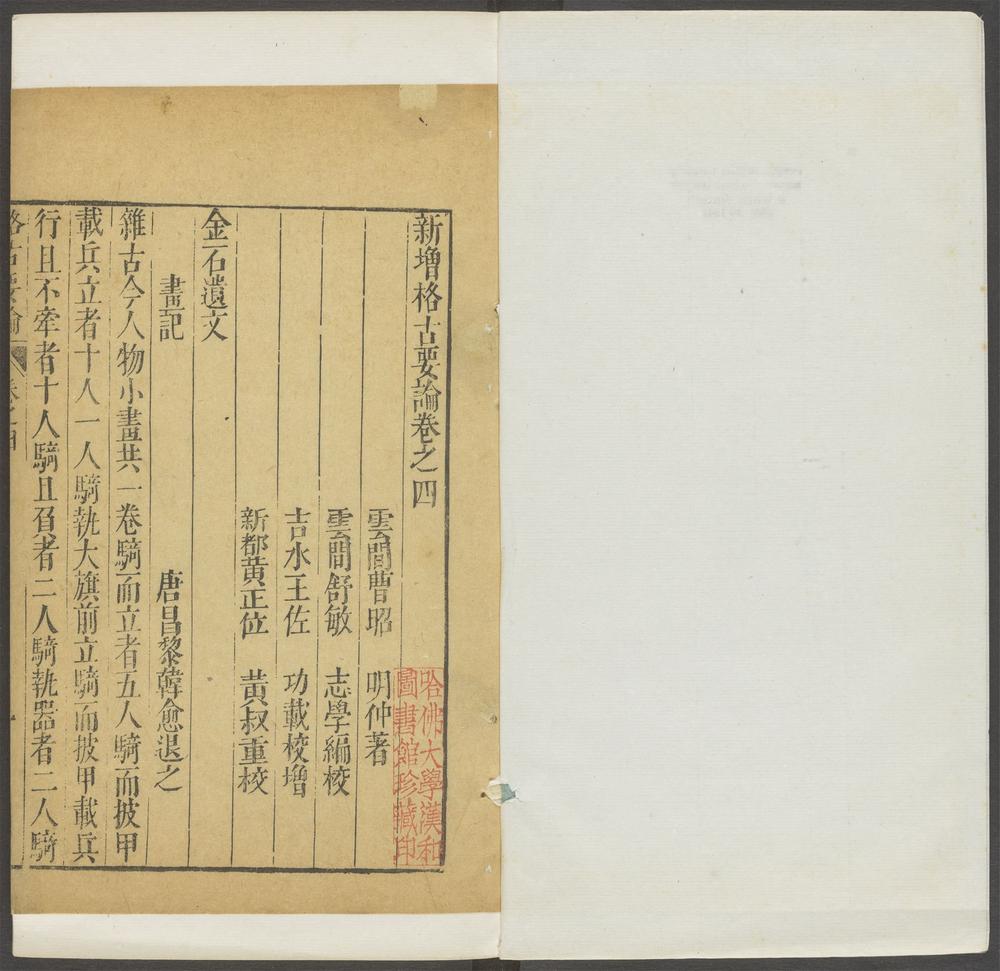 新增格古要論卷之四
雲間曹昭 明仲著
雲間舒敏 志學編校
吉水王佐 功載校增
新都黃正位 黃叔重校
金石遺文
畫記
唐昌黎韓愈退之
雜古今人物小畫共一卷騎而立者五人騎而披甲
載兵立者十人一人騎執大旗前立騎而披甲載兵
行且不牽者十人騎且負者二人騎執器者二人騎
格古要論 卷之四
哈佛大學漢和
圖書館珍藏印